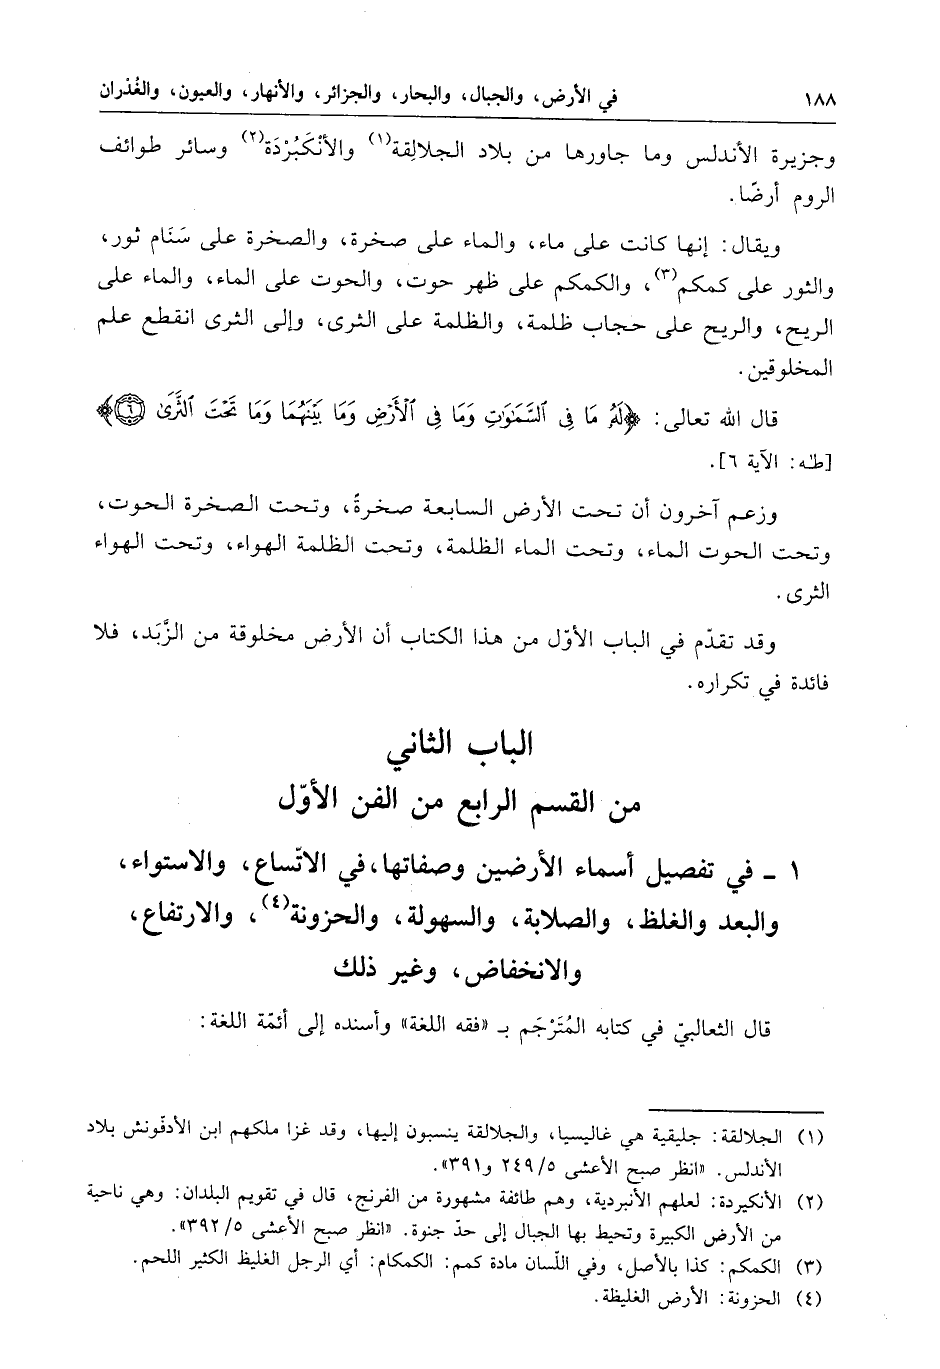 ١٨٨ في الأرض، والجبال، والبحار، والجزائر، والأنهار، والعيون، والغُدْران
وجزيرة الأندلس وما جاورها من بلاد الجلالِقة(١) والأنْكَبُرْدَة(٢) وسائر طوائف
الروم أرضًا.
ويقال: إنها كانت على ماء، والماء على صخرة، والصخرة على سَنَام ثور،
والثور على كمكم(٣)، والكمكم على ظهر حوت، والحوت على الماء، والماء على
الريح، والريح على حجاب ظلمة، والظلمة على الثرى، وإلى الثرى انقطع علم
المخلوقين.
قال الله تعالى: ﴿لَهُ مَا فِي السَّمَٰوَٰتِ وَمَا فِي الْأَرْضِ وَمَا بَيْنَهُمَا وَمَا تَحْتَ الثَّرَىٰ ٦﴾
[طـٰه: الآية ٦].
وزعم آخرون أن تحت الأرض السابعة صخرةً، وتحت الصخرة الحوت،
وتحت الحوت الماء، وتحت الماء الظلمة، وتحت الظلمة الهواء، وتحت الهواء
الثرى.
وقد تقدّم في الباب الأوّل من هذا الكتاب أن الأرض مخلوقة من الزَّبَد، فلا
فائدة في تكراره.
الباب الثاني
من القسم الرابع من الفن الأوّل
١ - في تفصيل أسماء الأرضين وصفاتها، في الاتّساع، والاستواء،
والبعد والغلظ، والصلابة، والسهولة، والحزونة(٤)، والارتفاع،
والانخفاض، وغير ذلك
قال الثعالبيّ في كتابه المُتَرْجَم بـ «فقه اللغة» وأسنده إلى أئمّة اللغة:
(١) الجلالقة: جليقية هي غاليسيا، والجلالقة ينسبون إليها، وقد غزا ملكهم ابن الأدفّونش بلاد
الأندلس. «انظر صبح الأعشى ٥/ ٢٤٩ و٣٩١».
(٢) الأنكيردة: لعلهم الأنبردية، وهم طائفة مشهورة من الفرنج، قال في تقويم البلدان: وهي ناحية
من الأرض الكبيرة وتحيط بها الجبال إلى حدّ جنوة. «انظر صبح الأعشى ٥/ ٣٩٢».
(٣) الكمكم: كذا بالأصل، وفي اللّسان مادة كمم: الكمكام: أي الرجل الغليظ الكثير اللحم.
(٤) الحزونة: الأرض الغليظة.